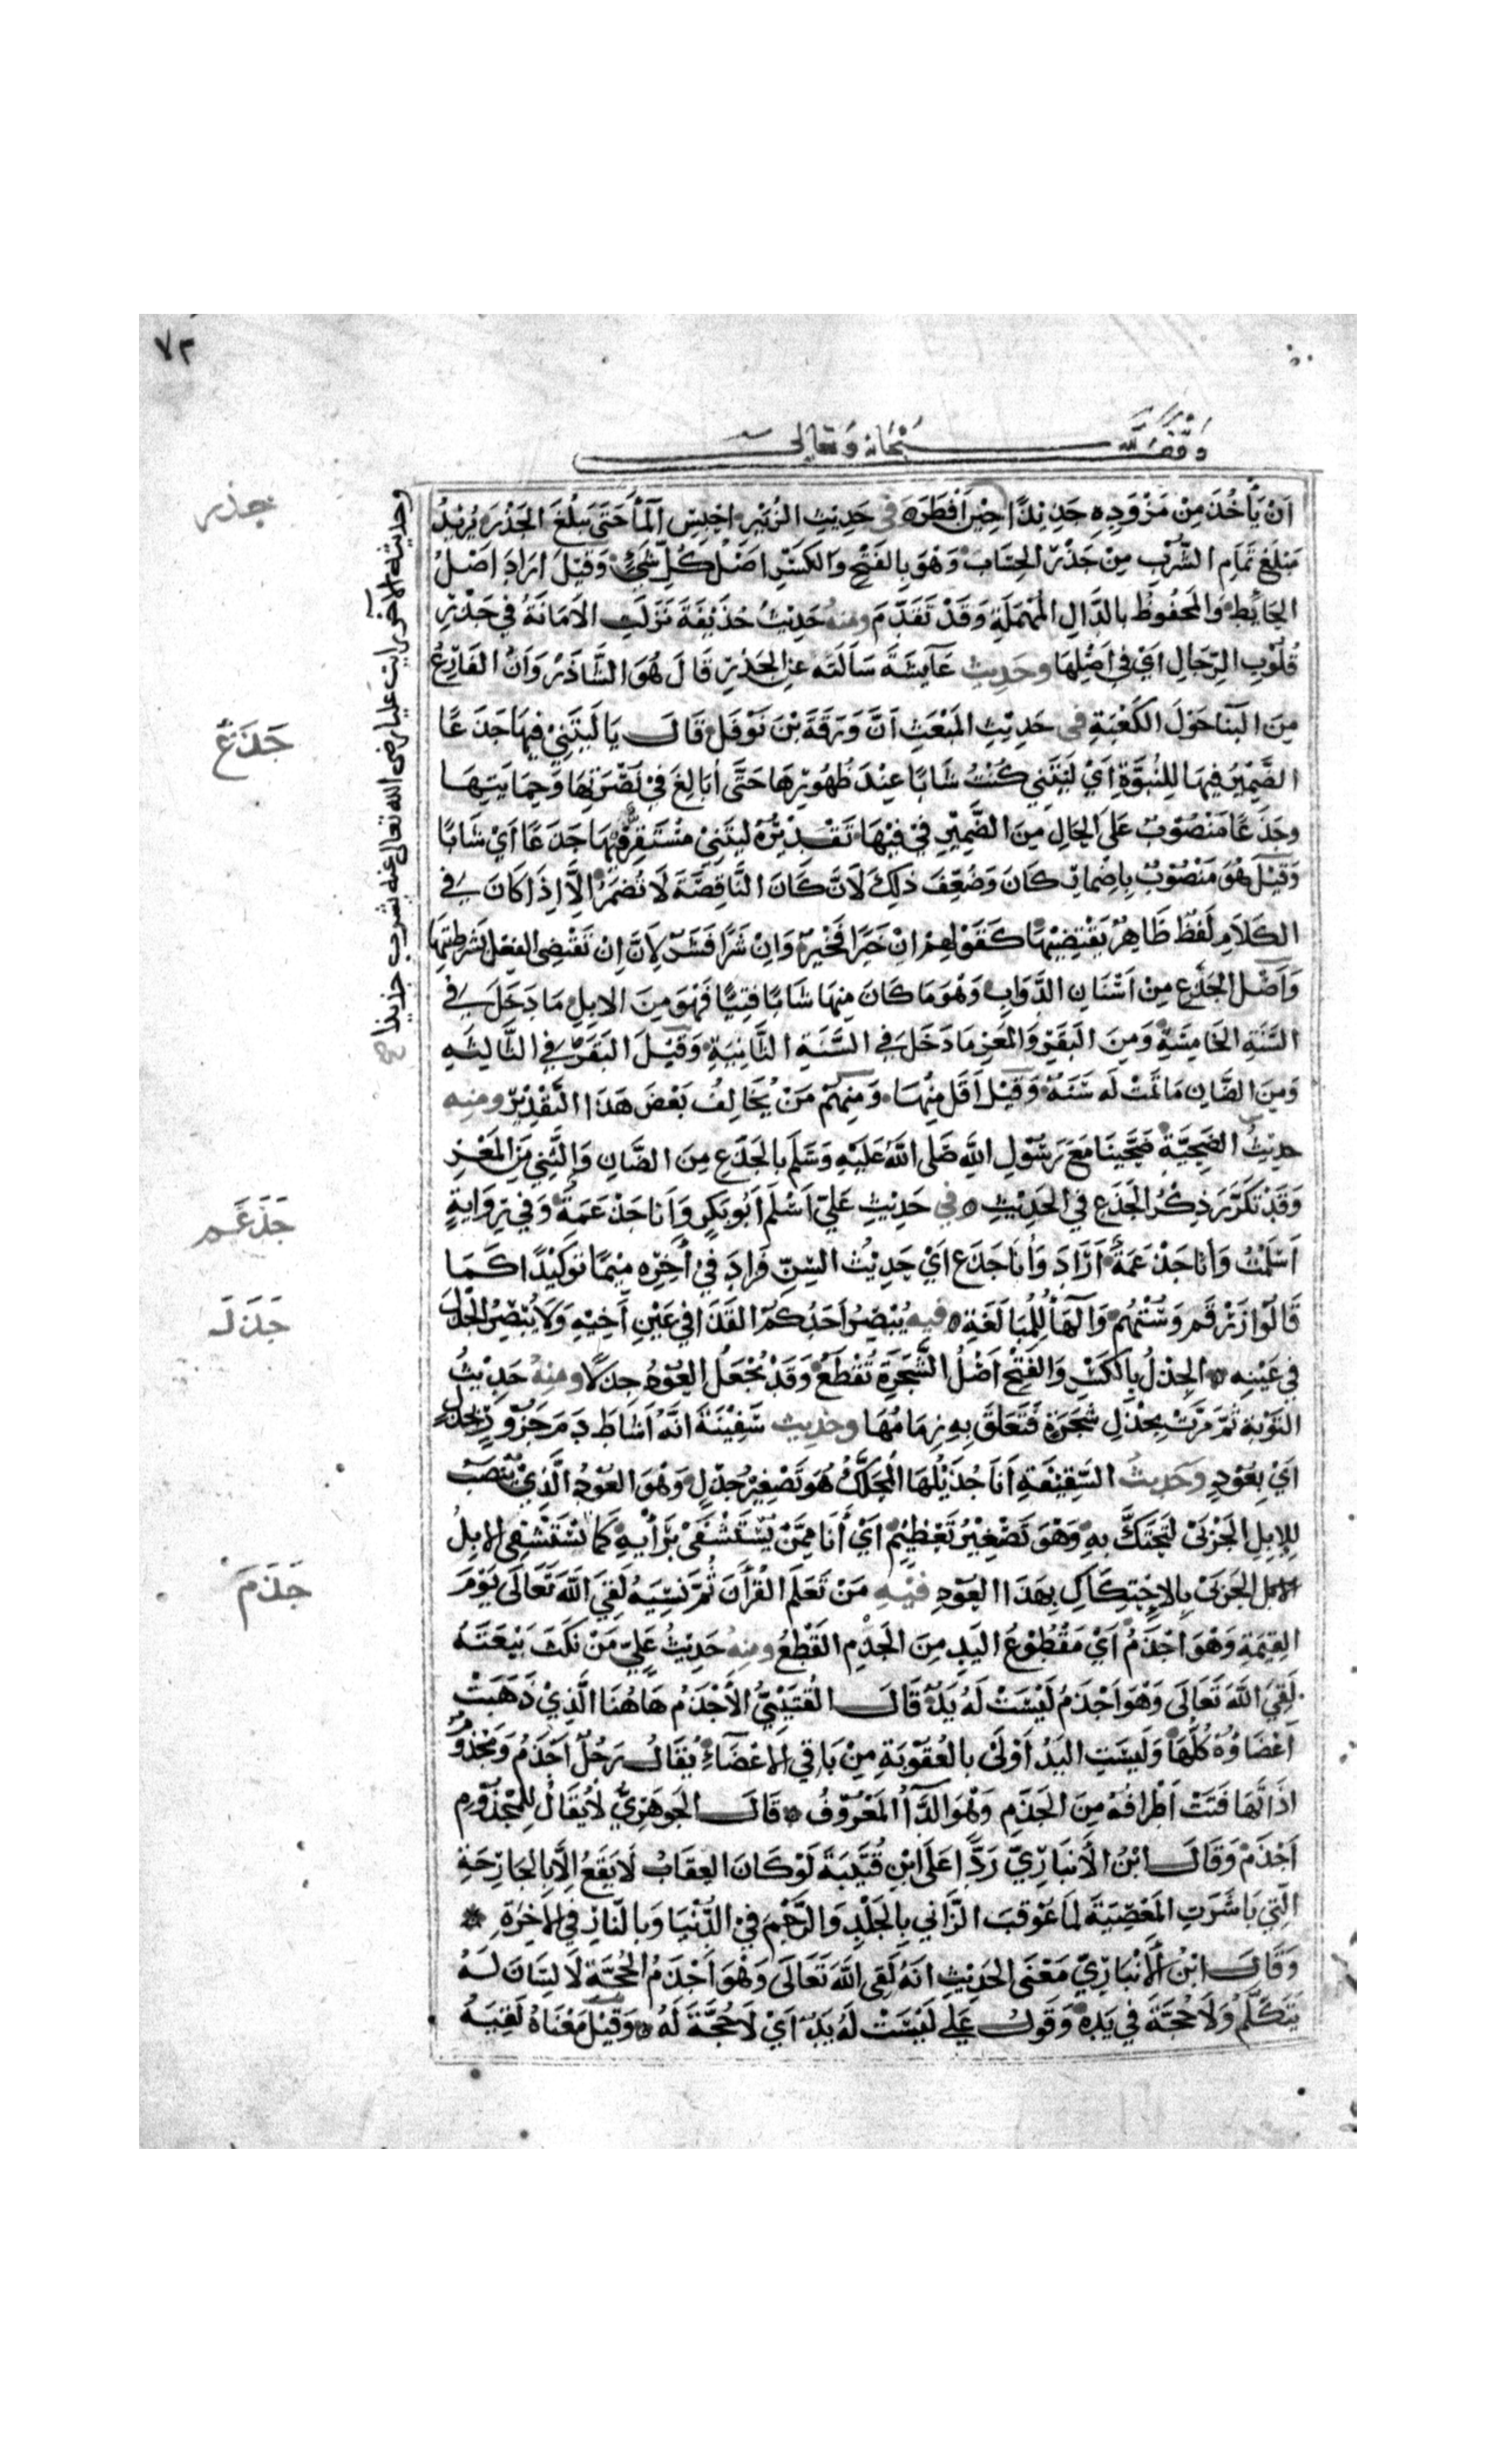 ٧٣
وقف لله سبحانه وتعالى
ان يأخذ من مزوده جذيذا حين افطره في حديث الزبير احبس المأ حتى يبلغ الجذر يريد
مبلغ تمام الشرب من جذر الحساب وهو بالفتح والكسر اصل كل شيء وقيل اراد اصل
الحايط والمحفوظ بالدال المهملة وقد تقدم ومنه حديث حذيفة نزلت الامانة في جذر
قلوب الرجال اي في اصلها وحديث عايشة سالته عن الجذر قال هو الشاذر وان الفارغ
من البنا حول الكعبة في حديث المبعث ان ورقة بن نوفل قال يا ليتني فيها جذعا
الضمير فيها للنبوة اي ليتني كنت شابا عند ظهورها حتى ابالغ في نصرتها وحمايتها
وجذعا منصوب على الحال من الضمير في فيها تقديره ليتني مستقر فيها جذعا اي شابا
وقيل هو منصوب باضمار كان وضعف ذلك لان كان الناقصة لا تضمر الا اذا كان في
الكلام لفظ ظاهر يقتضيها كقولهم ان خيرا فخير وان شرا فشر لان ان تقتضي الفعل بشرطيتها
واصل الجذع من اسنان الدواب وهو ما كان منها شابا فتيا فهو من الابل ما دخل في
السنة الخامسة ومن البقر والمعز ما دخل في السنة الثانية وقيل البقر في الثالثه
ومن الضان ما تمت له سنة وقيل اقل منها ومنهم من يخالف بعض هذا التقدير ومنه
حديث الضحية ضحينا مع رسول الله صلى الله عليه وسلم بالجذع من الضان والثني من المعز
وقد تكرر ذكر الجذع في الحديث ه في حديث علي اسلم ابو بكر وانا جذعمة وفي رواية
اسلمت وانا جذعمة اراد وانا جذع اي حديث السن فزاد في أخره ميما توكيدا كما
قالوا زرقم وستهم والهأ للمبالغة ه فيه يبصر احدكم القذا في عين اخيه ولا يبصر الجذل
في عينه ه الجذل بالكسر والفتح اصل الشجرة تقطع وقد تجعل العود جذلا ومنه حديث
التوبة ثم مرت بجذل شجرة فتعلق به زمامها وحديث سفينة انه اشاط دم جزور بجذل
اي بعود وحديث السقيفة انا جذيلها المحكك هو تصغير جذل وهو العود الذي ينصب
للابل الجربى لتحتك به وهو تصغير تعظيم اي أنا ممن يستشفى برأيه كما تستشفي الابل
الجربى بالاحتكاك بهذا العود فيه من تعلم القرأن ثم نسيه لقي الله تعالى يوم
القيمة وهو اجذم اي مقطوع اليد من الجذم القطع ومنه حديث علي من نكث بيعته
لقي الله تعالى وهو اجذم ليست له يد قال القتيبي الأجذم هاهنا الذي ذهبت
اعضاؤه كلها وليست اليد أولى بالعقوبة من باقي الاعضاء يقال رجل اجذم ومجذوم
اذا تهافتت اطرافه من الجذم وهو الدآ المعروف ه قال الجوهري لا يقال للمجذوم
اجذم وقال ابن الأنباري ردا على ابن قتيبة لو كان العقاب لا يقع الا بالجارحة
التي باشرت المعصية لما عوقب الزاني بالجلد والرجم في الدنيا وبالنار في الاخرة
وقال ابن الأنباري معنى الحديث انه لقي الله تعالى وهو اجذم الحجة لا لسان له
يتكلم ولا حجة في يده وقول علي ليست له يد اي لا حجة له ه وقيل معناه لقيه
وحديثه الآخر رايت عليا رضي الله تعالى عنه يشرب جذيذا صح
جذر
جذع
جذعم
جذل
جذم